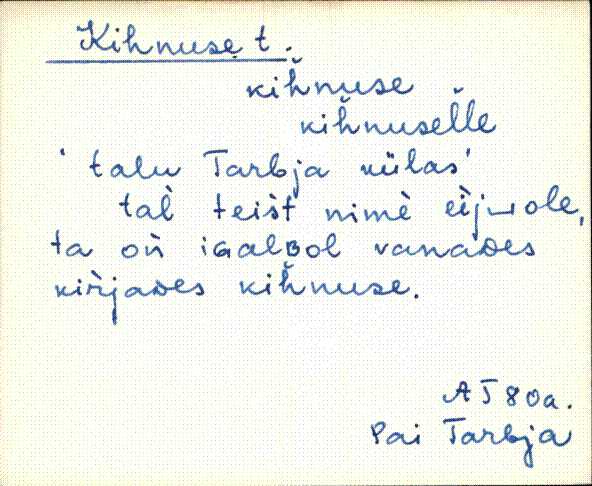 Kihnuse t.
kiȟnuse
kiȟnusel̆l̆e
' talu Tarbja külas'
tal̀ teis̀t nimè eìj‿ole,
ta oǹ iGalBol vanaDes
kir̀jaDes kiȟnuse.
AJ 80a.
Pai Tarbja